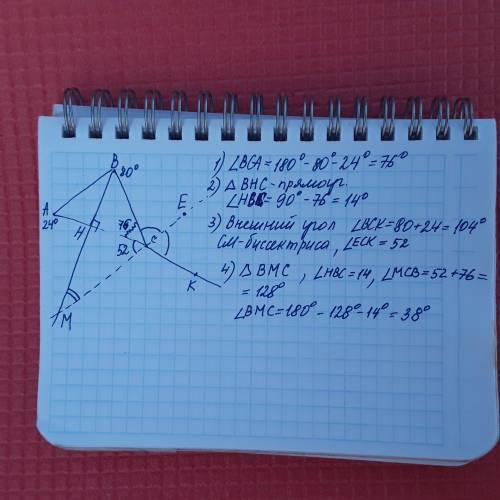 B
80°
A
24°
H
76
E
52
C
K
M
1) ∠BCA = 180° - 80° - 24° = 76°
2) △ BHC - прямоуг.
∠HBC = 90° - 76° = 14°
3) Внешний угол ∠BCK = 80 + 24 = 104°
CM - биссектриса, ∠ECK = 52
4) △ BMC, ∠HBC = 14, ∠MCB = 52 + 76 =
= 128°
∠BMC = 180° - 128° - 14° = 38°